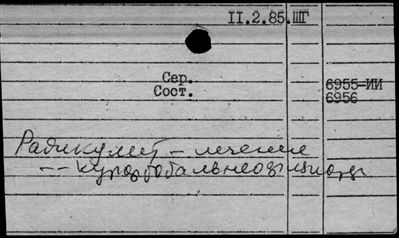 II.2.85.ШГ
Сер.
Сост.
6955-ИИ
6956
Радикулит – лечение
-- курортобальнеофизиотер